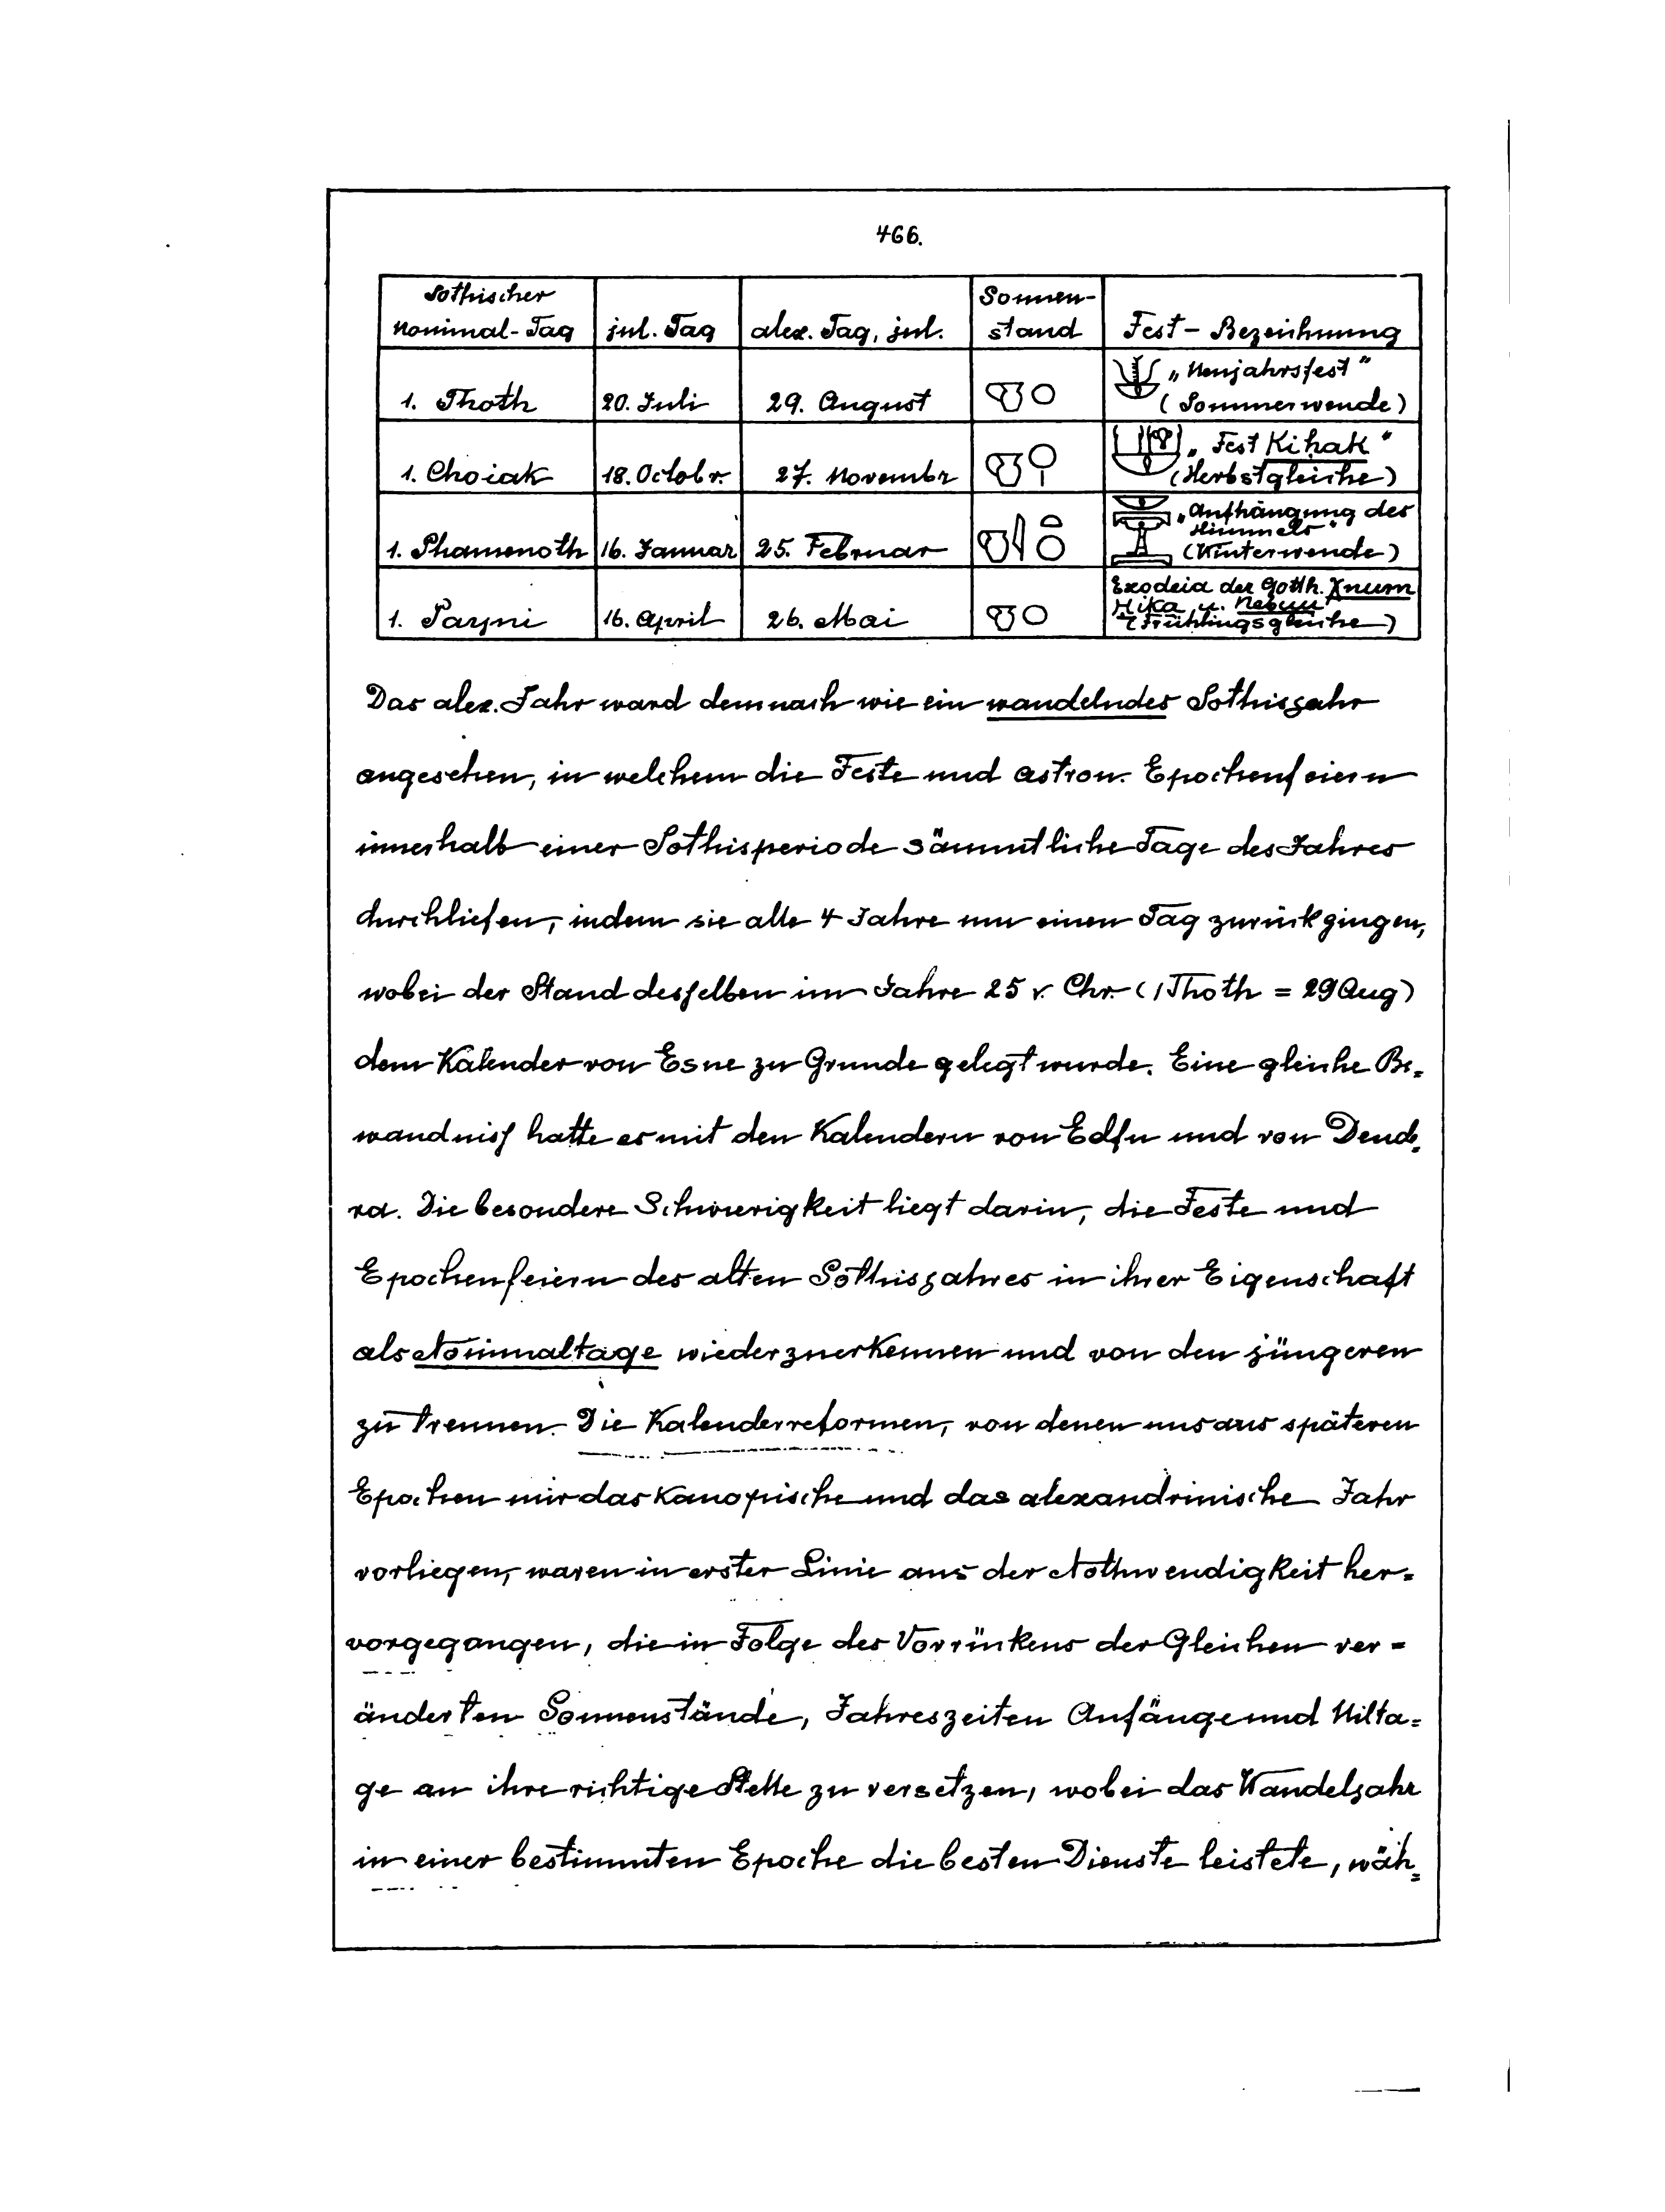 466.
Sothischer Nominal-Tag | jul. Tag | alex. Tag, jul. | Sonnen-stand | Fest-Bezeichnung
1. Thoth | 20. Juli | 29. August | „Neujahrsfest“ (Sommerwende)
1. Choiak | 18. Octobr. | 27. Novembr | „Fest Kihak“ (Herbstgleiche)
1. Phamenoth | 16. Januar | 25. Februar | „Aufhängung des Himmels“ (Winterwende)
1. Payni | 16. April | 26. Mai | Exodeia der Gotth. Xnum Hika u. Nebuu (Frühlingsgleiche)
Das alex. Jahr ward demnach wie ein wandelndes Sothisjahr
angesehen, in welchem die Feste und astron. Epochenfeiern
innerhalb einer Sothisperiode sämmtliche Tage des Jahres
durchliefen, indem sie alle 4 Jahre um einen Tag zurückgingen,
wobei der Stand desselben im Jahre 25 v. Chr. (1 Thoth = 29 Aug)
dem Kalender von Esne zu Grunde gelegt wurde. Eine gleiche Be=
wandniss hatte es mit den Kalendern von Edfu und von Dend=
ra. Die besondere Schwierigkeit liegt darin, die Feste und
Epochenfeiern des alten Sothisjahres in ihrer Eigenschaft
als Nominaltage wiederzuerkennen und von den jüngeren
zu trennen. Die Kalenderreformen, von denen uns aus späteren
Epochen nur das kanopische und das alexandrinische Jahr
vorliegen, waren in erster Linie aus der Nothwendigkeit her=
vorgegangen, die in Folge des Vorrückens der Gleichen ver=
änderten Sonnenstände, Jahreszeiten Anfänge und Nilta=
ge an ihre richtige Stelle zu versetzen, wobei das Wandeljahr
in einer bestimmten Epoche die besten Dienste leistete, wäh=